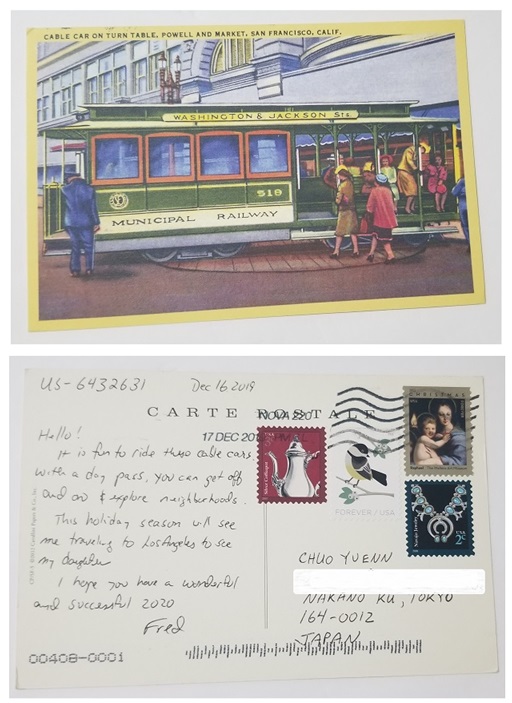 CABLE CAR ON TURN TABLE, POWELL AND MARKET, SAN FRANCISCO, CALIF.
WASHINGTON & JACKSON Sts.
518
MUNICIPAL RAILWAY
US-6432631 Dec 16 2019
CARTE POSTALE
NOVA 220
17 DEC 201 PM
CHRISTMAS
Hello!
It is fun to ride these cable cars.
With a day pass, you can get off
and on & explore neighborhoods.
This holiday season will see
me traveling to Los Angeles to see
my daughter
I hope you have a wonderful
and successful 2020
Fred
FOREVER / USA
Navajo Jewelry
2¢
CHUO YUENN
NAKANO KU, TOKYO
164-0012
JAPAN
00408-0001